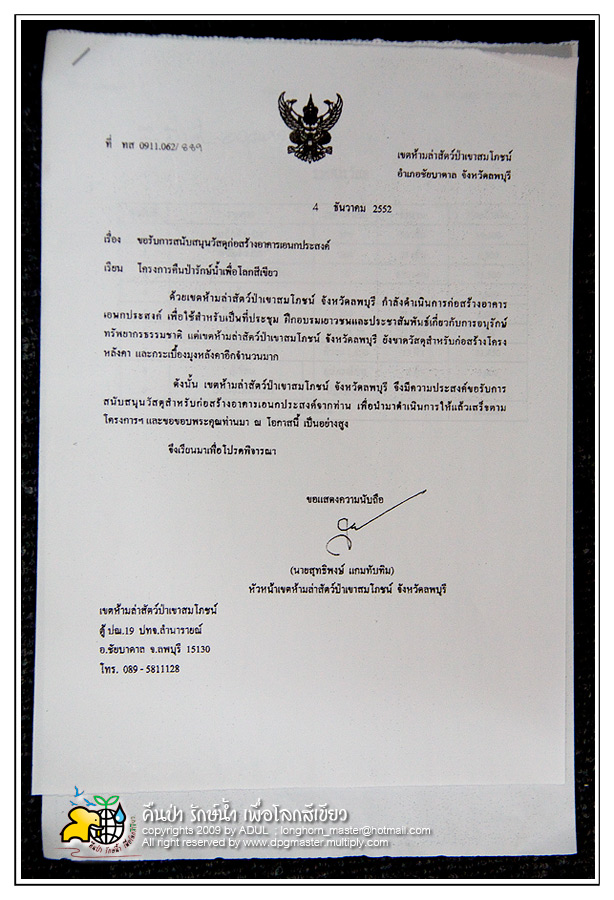 ที่ ทส 0911.062/ ๘๘๑
เขตห้ามล่าสัตว์ป่าเขาสมโภชน์
อำเภอชัยบาดาล จังหวัดลพบุรี
4 ธันวาคม 2552
เรื่อง ขอรับการสนับสนุนวัสดุก่อสร้างอาคารเอนกประสงค์
เรียน โครงการคืนป่ารักษ์น้ำเพื่อโลกสีเขียว
ด้วยเขตห้ามล่าสัตว์ป่าเขาสมโภชน์ จังหวัดลพบุรี กำลังดำเนินการก่อสร้างอาคาร
เอนกประสงค์ เพื่อใช้สำหรับเป็นที่ประชุม ฝึกอบรมเยาวชนและประชาสัมพันธ์เกี่ยวกับการอนุรักษ์
ทรัพยากรธรรมชาติ แต่เขตห้ามล่าสัตว์ป่าเขาสมโภชน์ จังหวัดลพบุรี ยังขาดวัสดุสำหรับก่อสร้างโครง
หลังคา และกระเบื้องมุงหลังคาอีกจำนวนมาก
ดังนั้น เขตห้ามล่าสัตว์ป่าเขาสมโภชน์ จังหวัดลพบุรี จึงมีความประสงค์ขอรับการ
สนับสนุนวัสดุสำหรับก่อสร้างอาคารเอนกประสงค์จากท่าน เพื่อนำมาดำเนินการให้แล้วเสร็จตาม
โครงการฯ และขอขอบพระคุณท่านมา ณ โอกาสนี้ เป็นอย่างสูง
จึงเรียนมาเพื่อโปรดพิจารณา
ขอแสดงความนับถือ
(นายสุทธิพงษ์ แกมทับทิม)
หัวหน้าเขตห้ามล่าสัตว์ป่าเขาสมโภชน์ จังหวัดลพบุรี
เขตห้ามล่าสัตว์ป่าเขาสมโภชน์
ตู้ ปณ.19 ปทจ.ลำนารายณ์
อ.ชัยบาดาล จ.ลพบุรี 15130
โทร. 089-5811128
คืนป่า รักษ์น้ำ เพื่อโลกสีเขียว
copyrights 2009 by ADUL ; longhorn_master@hotmail.com
All right reserved by www.dpgmaster.multiply.com
คืนป่า รักษ์น้ำ เพื่อโลกสีเขียว